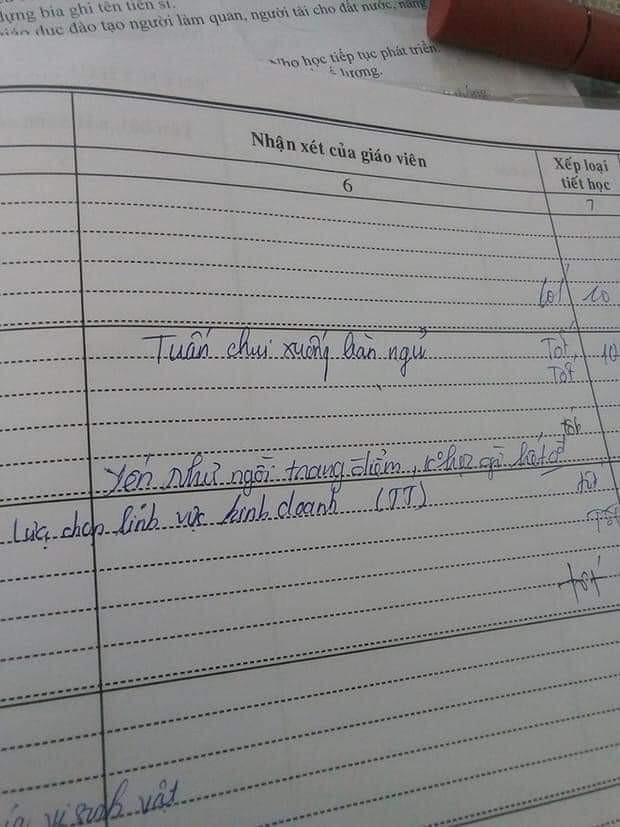 dựng bia ghi tên tiến sĩ.
giáo dục đào tạo người làm quan, người tài cho đất nước, nâng
Nho học tiếp tục phát triển.
lượng.
Nhận xét của giáo viên
Xếp loại
tiết học
6
7
tốt 10
Tuấn chui xuống bàn ngủ
Tốt 10
Tốt
tốt
Yến Như ngồi trang điểm, k học gì hết cả
Lựa chọn lĩnh vực kinh doanh (TT)
tốt
Tốt
tốt
vi sinh vật